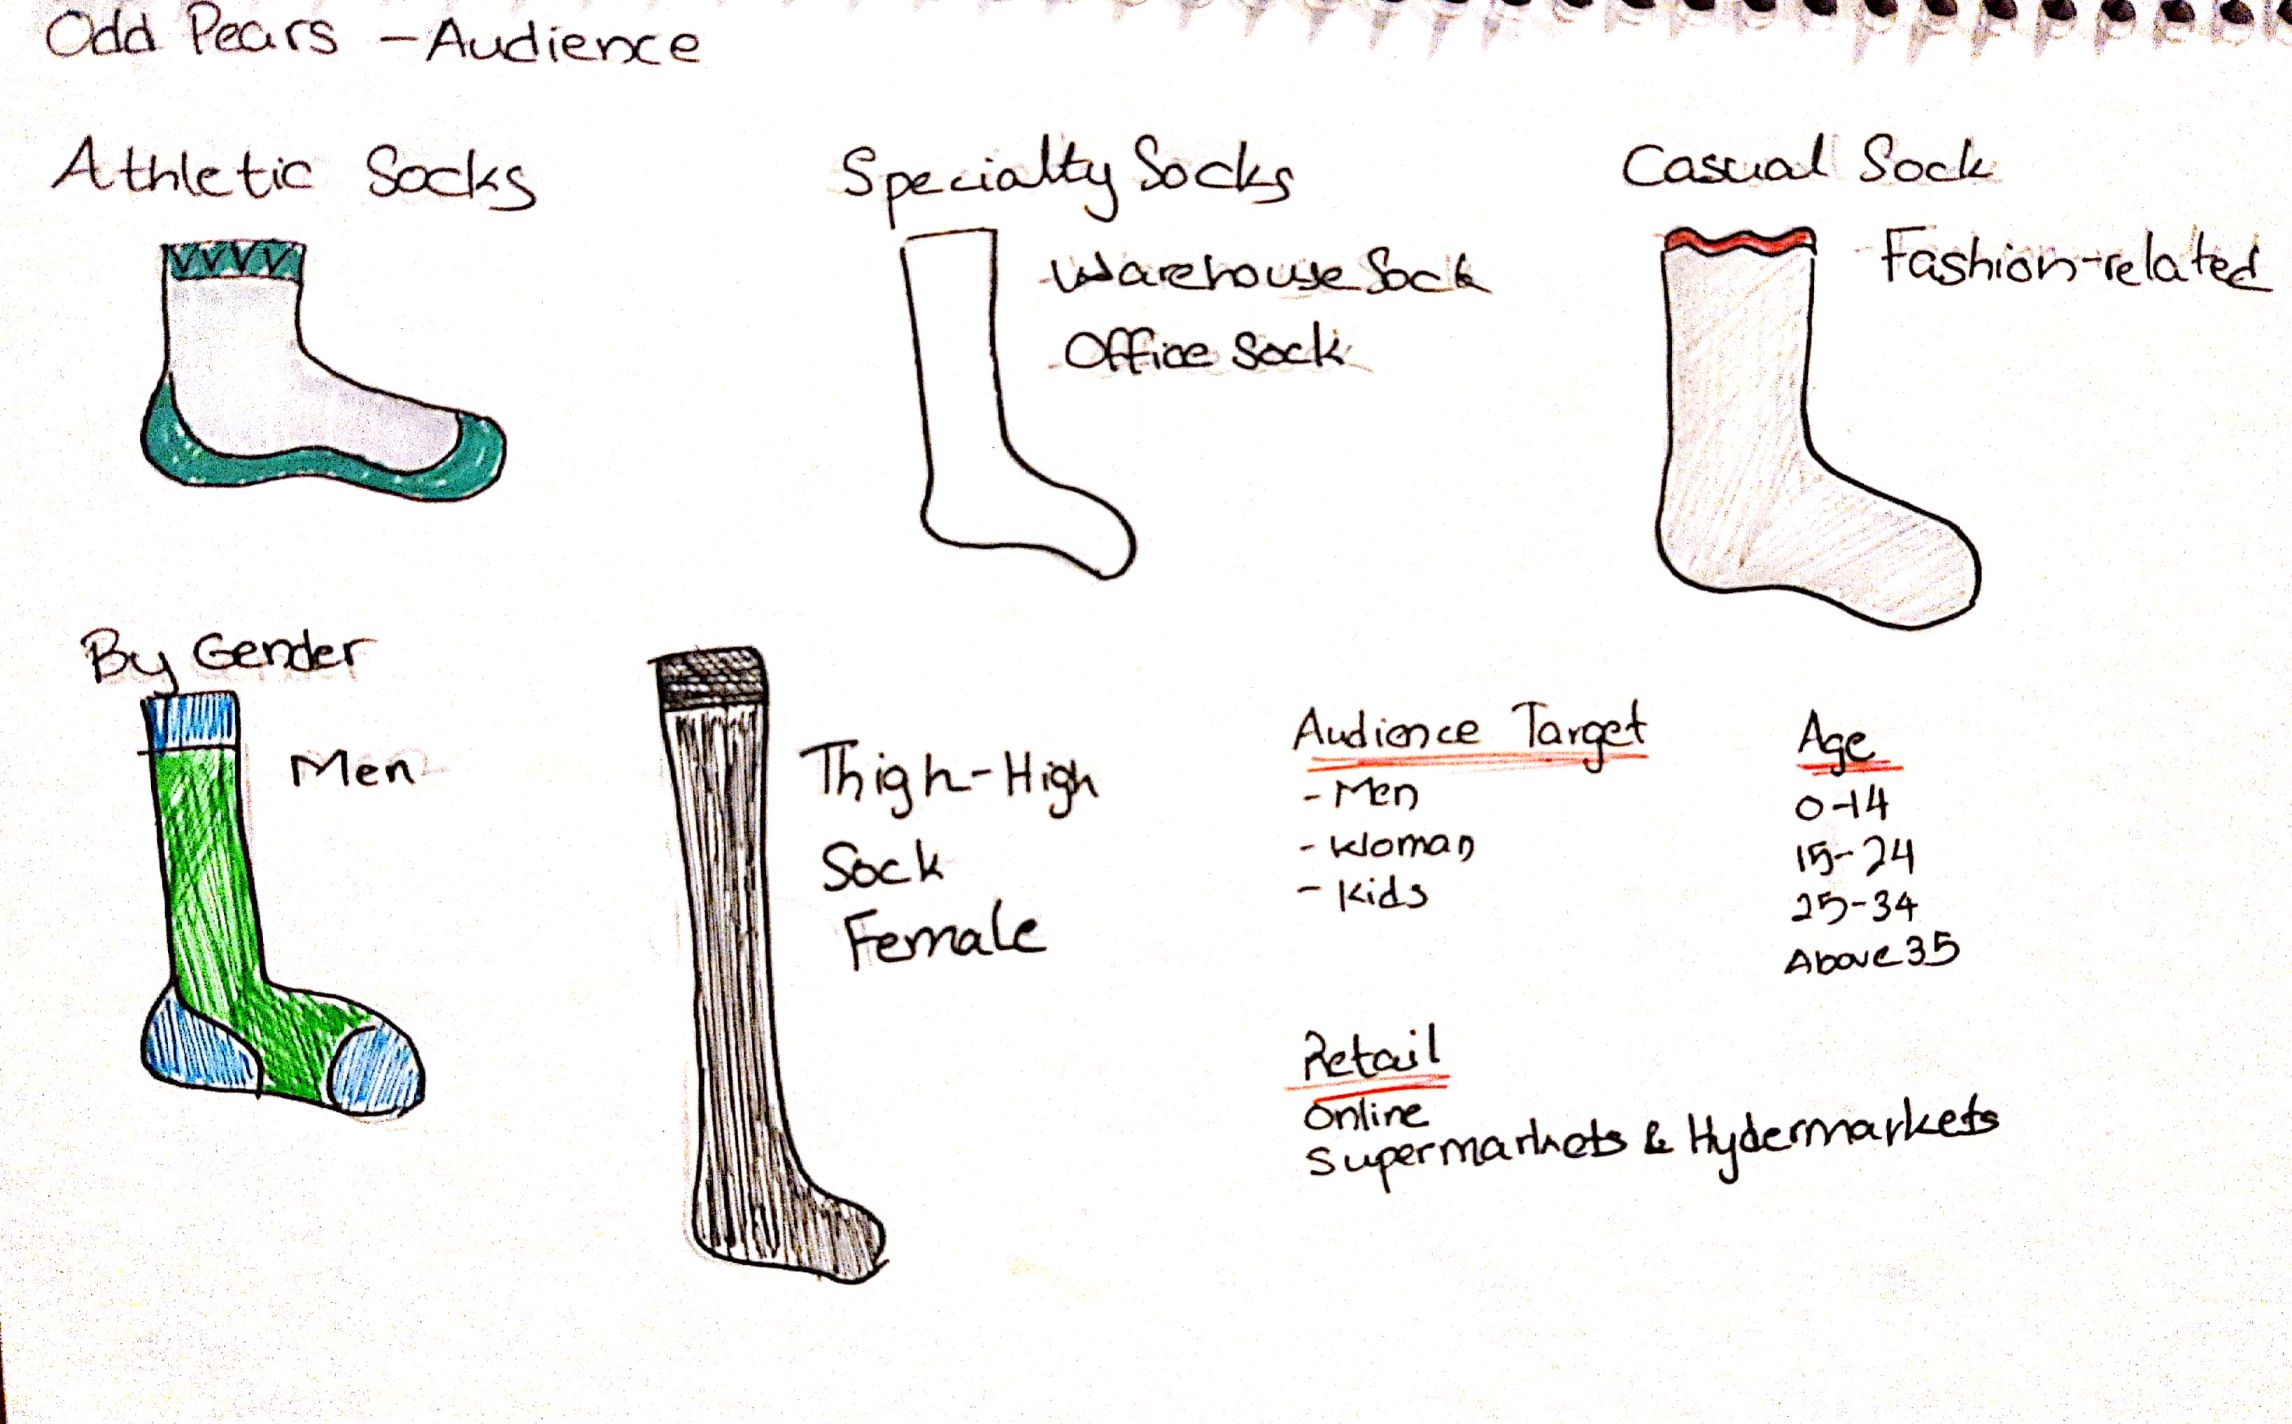 Odd Pears - Audience
Athletic Socks
Specialty Socks
- Warehouse Sock
- Office Sock
Casual Sock
- Fashion-related
By Gender
Men
Thigh-High
Sock
Female
Audience Target
- Men
- Woman
- Kids
Age
0-14
15-24
25-34
Above 35
Retail
Online
Supermarkets & Hydermarkets